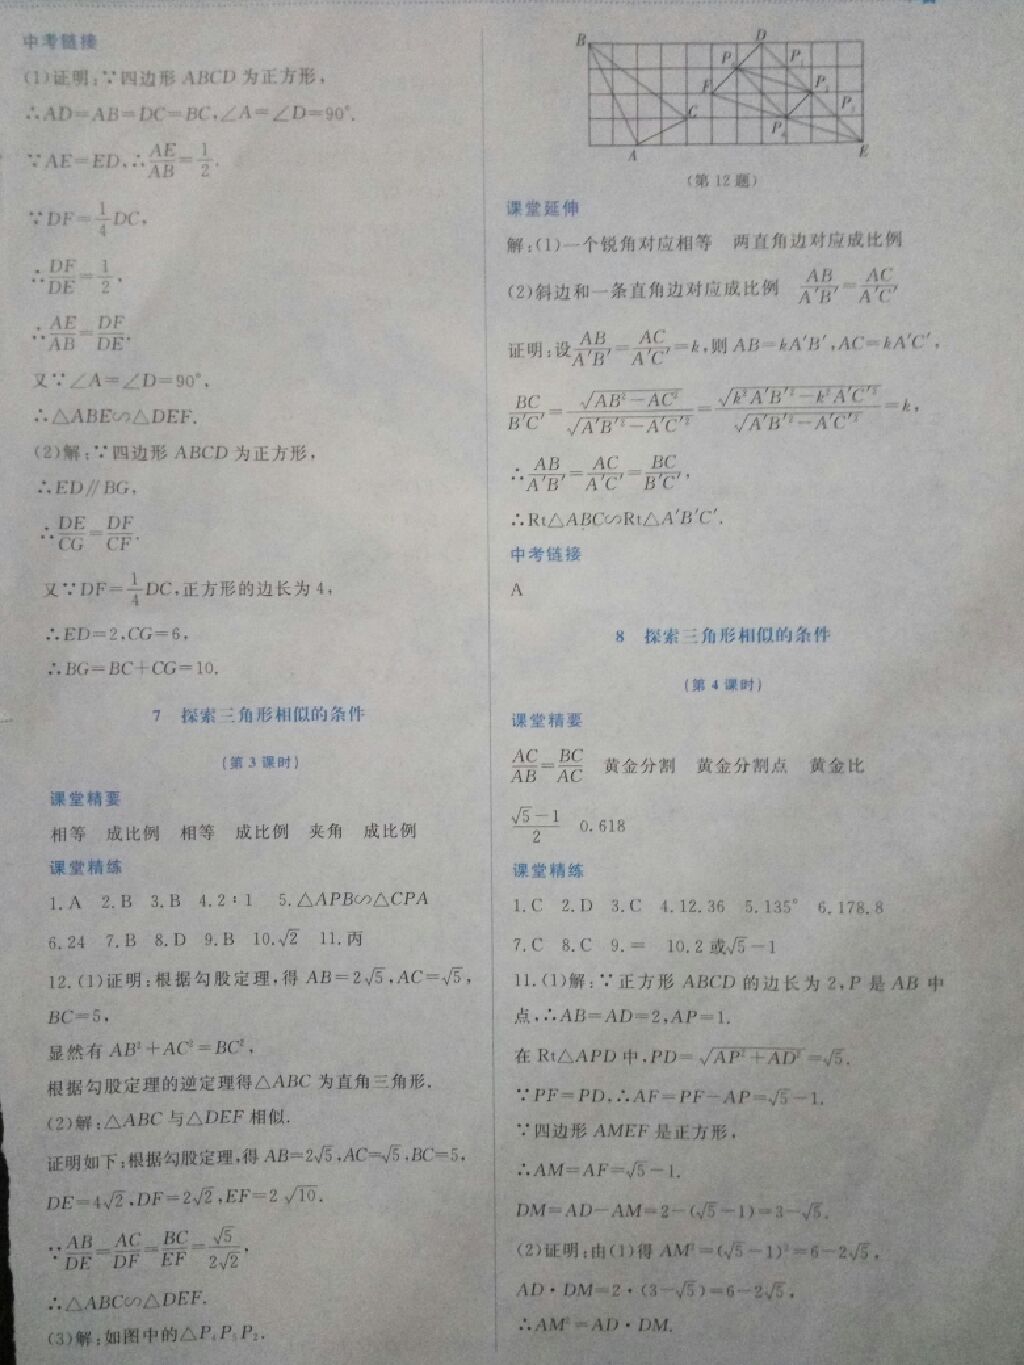 中考链接
(1)证明:∵四边形 ABCD 为正方形,
∴AD=AB=DC=BC,∠A=∠D=90°.
∵AE=ED,∴AE/AB=1/2.
∵DF=1/4DC,
∴DF/DE=1/2,
∴AE/AB=DF/DE.
又∵∠A=∠D=90°,
∴△ABE∽△DEF.
(2)解:∵四边形 ABCD 为正方形,
∴ED∥BG,
∴DE/CG=DF/CF.
又∵DF=1/4DC,正方形的边长为 4,
∴ED=2,CG=6,
∴BG=BC+CG=10.
7 探索三角形相似的条件
(第 3 课时)
课堂精要
相等 成比例 相等 成比例 夹角 成比例
课堂精练
1.A 2.B 3.B 4.2∶1 5.△APB∽△CPA
6.24 7.B 8.D 9.B 10.√2 11.丙
12.(1)证明:根据勾股定理,得 AB=2√5,AC=√5,
BC=5,
显然有 AB²+AC²=BC²,
根据勾股定理的逆定理得△ABC 为直角三角形.
(2)解:△ABC 与△DEF 相似.
证明如下:根据勾股定理,得 AB=2√5,AC=√5,BC=5,
DE=4√2,DF=2√2,EF=2√10.
∵AB/DE=AC/DF=BC/EF=√5/2√2,
∴△ABC∽△DEF.
(3)解:如图中的△P₄P₅P₂,
B D
P₁
F
C
P₄
P₃
A E
(第 12 题)
课堂延伸
解:(1)一个锐角对应相等 两直角边对应成比例
(2)斜边和一条直角边对应成比例 AB/A′B′=AC/A′C′
证明:设AB/A′B′=AC/A′C′=k,则 AB=kA′B′,AC=kA′C′,
BC/B′C′=√(AB²−AC²)/√(A′B′²−A′C′²)=√(k²A′B′²−k²A′C′²)/√(A′B′²−A′C′²)=k,
∴AB/A′B′=AC/A′C′=BC/B′C′,
∴Rt△ABC∽Rt△A′B′C′.
中考链接
A
8 探索三角形相似的条件
(第 4 课时)
课堂精要
AC/AB=BC/AC 黄金分割 黄金分割点 黄金比
(√5−1)/2 0.618
课堂精练
1.C 2.D 3.C 4.12.36 5.135° 6.178.8
7.C 8.C 9.= 10.2 或√5−1
11.(1)解:∵正方形 ABCD 的边长为 2,P 是 AB 中
点,∴AB=AD=2,AP=1.
在 Rt△APD 中,PD=√(AP²+AD²)=√5.
∵PF=PD,∴AF=PF−AP=√5−1.
∵四边形 AMEF 是正方形,
∴AM=AF=√5−1.
DM=AD−AM=2−(√5−1)=3−√5.
(2)证明:由(1)得 AM²=(√5−1)²=6−2√5,
AD·DM=2·(3−√5)=6−2√5,
∴AM²=AD·DM.